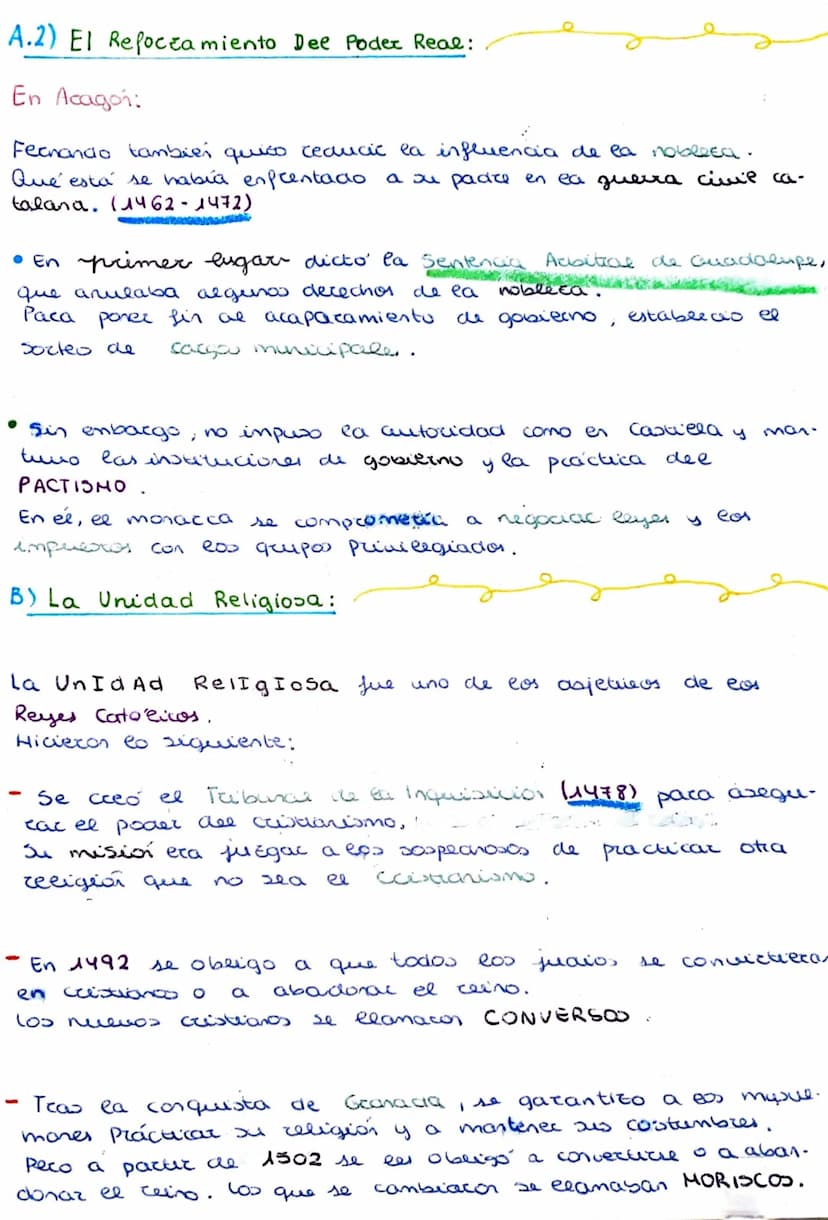 A.2) El Reforzamiento Del Poder Real:
En Aragón:
Fernando también quiso reducir la influencia de la nobleza.
Que está se había enfrentado a su padre en la guerra civil ca-
talana. (1462-1472)
• En primer lugar dictó la Sentencia Arbitral de Guadalupe,
que anulaba algunos derechos de la nobleza.
Para poner fin al acaparamiento de gobierno, establecio el
sorteo de cargos municipales.
• Sin embargo, no impuso la autoridad como en Castilla y man-
tuvo las instituciones de gobierno y la práctica del
PACTISMO.
En él, el monarca se comprometía a negociar leyes y los
impuestos con los grupos Privilegiados.
B) La Unidad Religiosa:
La UnIdAd RelIgIoSa fue uno de los objetivos de los
Reyes Católicos.
Hicieron lo siguiente:
- Se creó el Tribunal de la Inquisición (1478) para asegu-
rar el poder del cristianismo,
Su misión era juzgar a los sospechosos de practicar otra
religión que no sea el cristianismo.
- En 1492 se obligo a que todos los judios se convirtieran
en cristianos o a abadonar el reino.
Los nuevos cristianos se llamaron CONVERSOS.
- Tras la conquista de Granada, se garantizo a los musul-
manes Prácticar su religión y a mantener sus costumbres.
Pero a partir de 1502 se les obligó a convertirse o a aban-
donar el reino. Los que se cambiaron se llamaban MORISCOS.